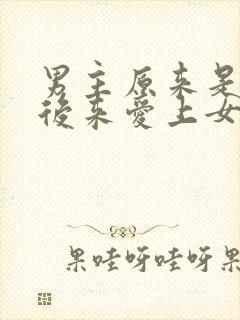 男主原来是
后来爱上女
果哇呀哇呀果